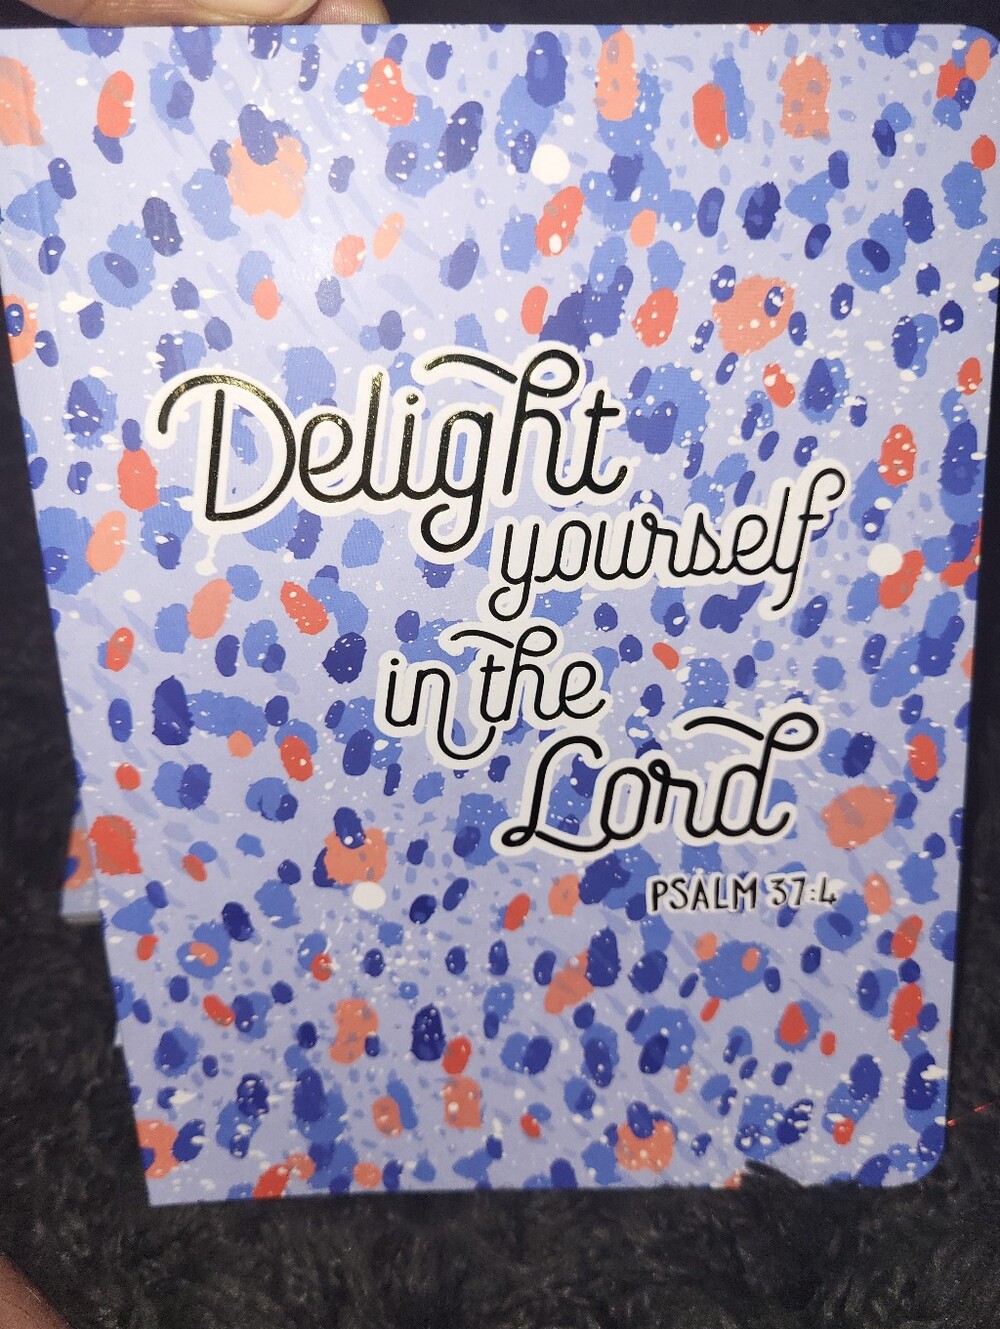 Delight
yourself
in the
Lord
PSALM 37:4